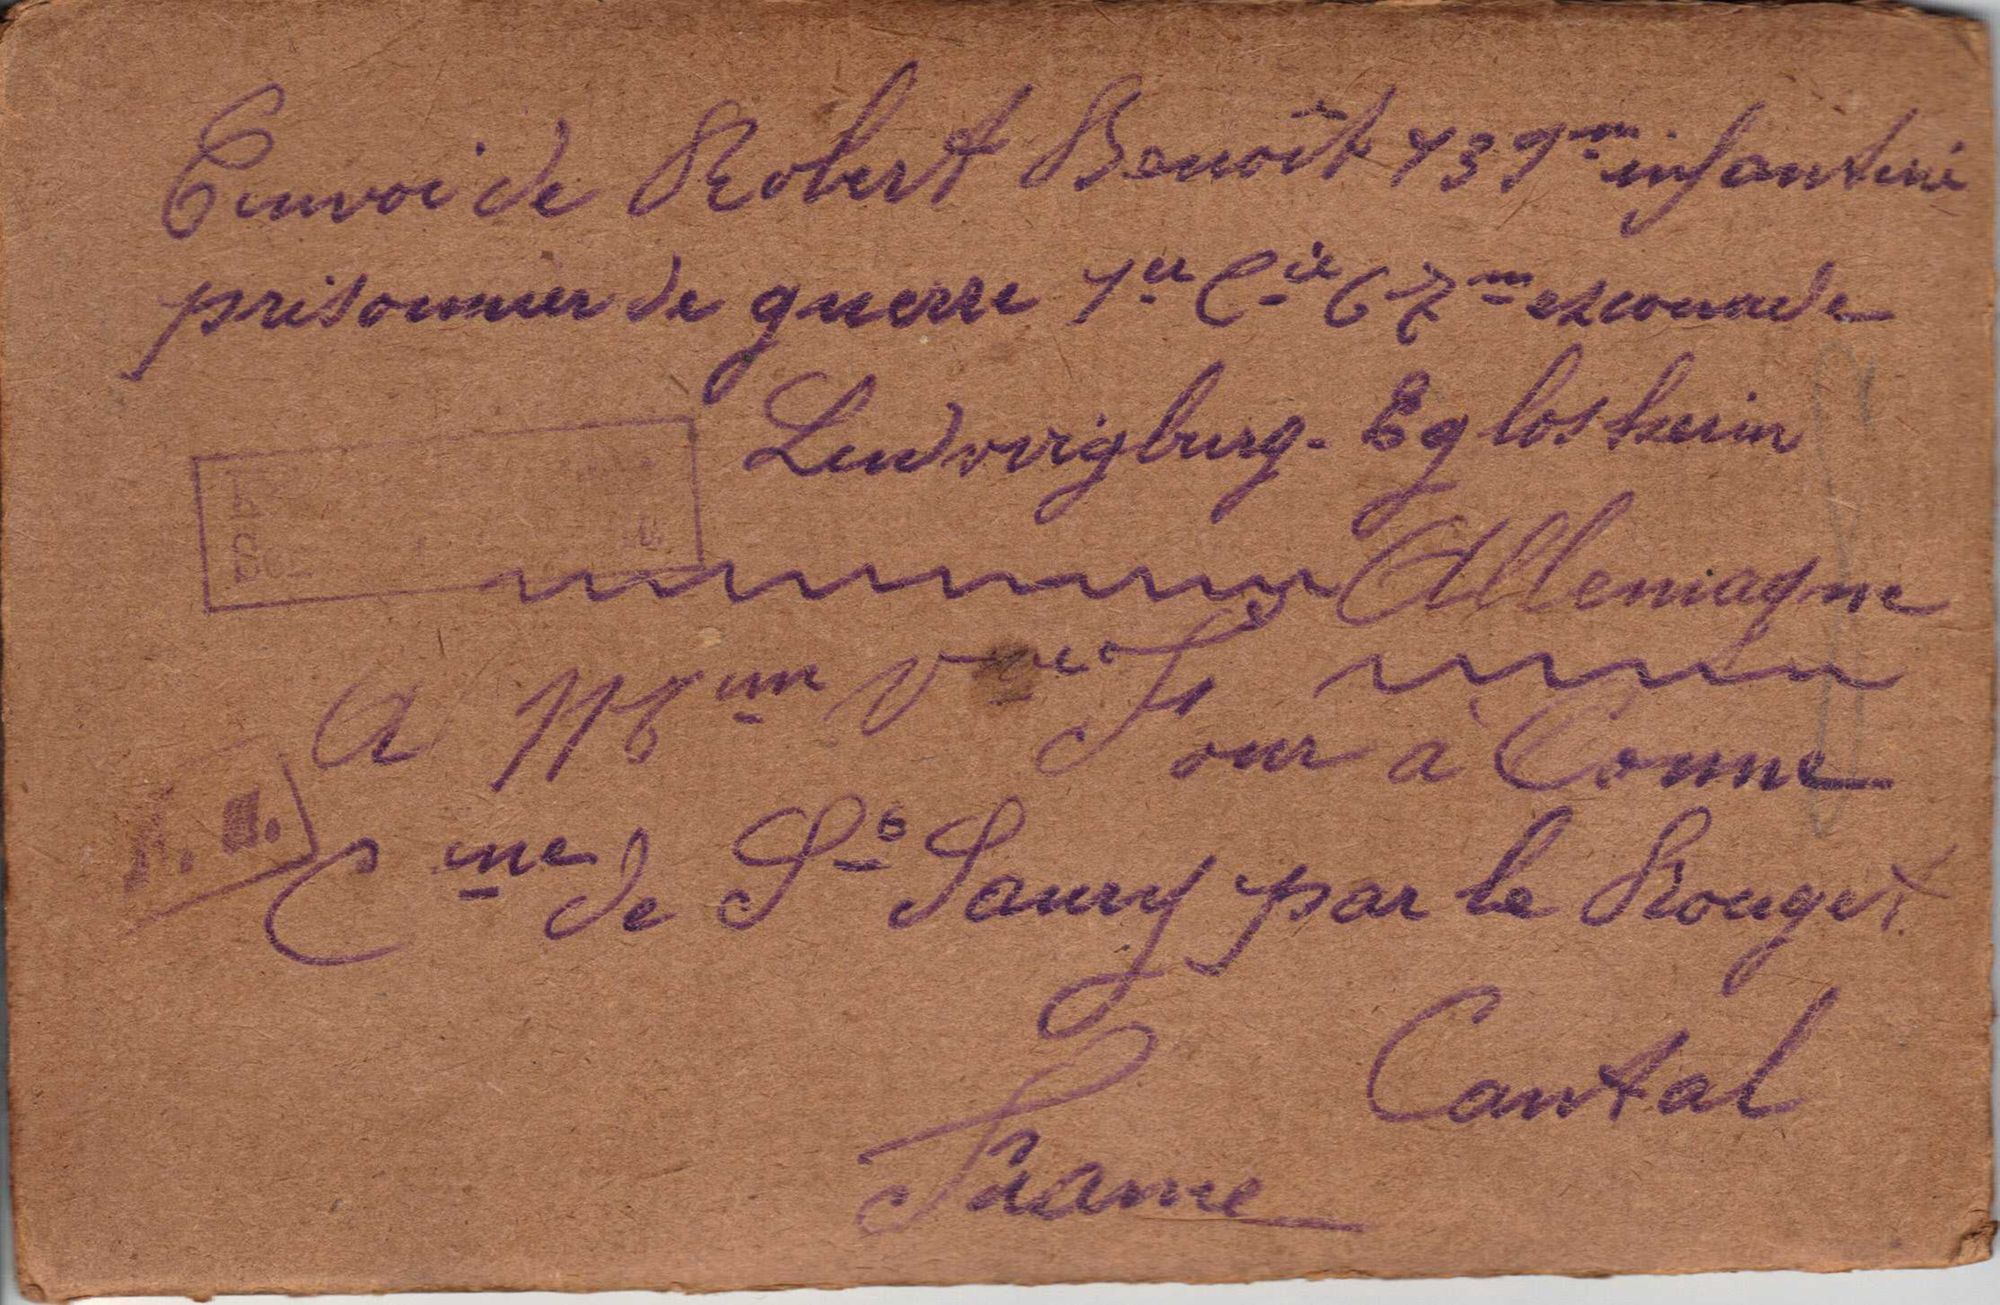 Envoi de Robert Benoît 139ᵐ infanterie
prisonnier de guerre 1er Cie 67ᵐ escouade
Ludwigburg-Eglosheim
Allemagne
A Mme Vve
Four à Conne
Cme de St Saury par le Rouget
Cantal
France